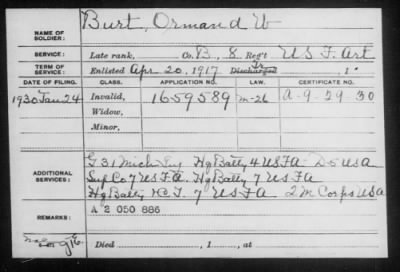 NAME OF SOLDIER: Burt, Ormand W
SERVICE: Late rank, Co. B, 8 Reg't U S F. Art
TERM OF SERVICE: Enlisted Apr 20, 1917 Discharged , 1
DATE OF FILING. CLASS. APPLICATION NO. LAW. CERTIFICATE NO.
1930 Jan 24 Invalid, 1659589 m-26 A-9-29 30
Widow,
Minor,
G 31 Mich Inf Hq Batty 4 USFA
ADDITIONAL SERVICES Sup Co 7 USFA. Hq Batty 7 USFA
Hq Batty 7 USFA 2 M Corps USA
REMARKS: A 2 050 886
Died , 1 , at